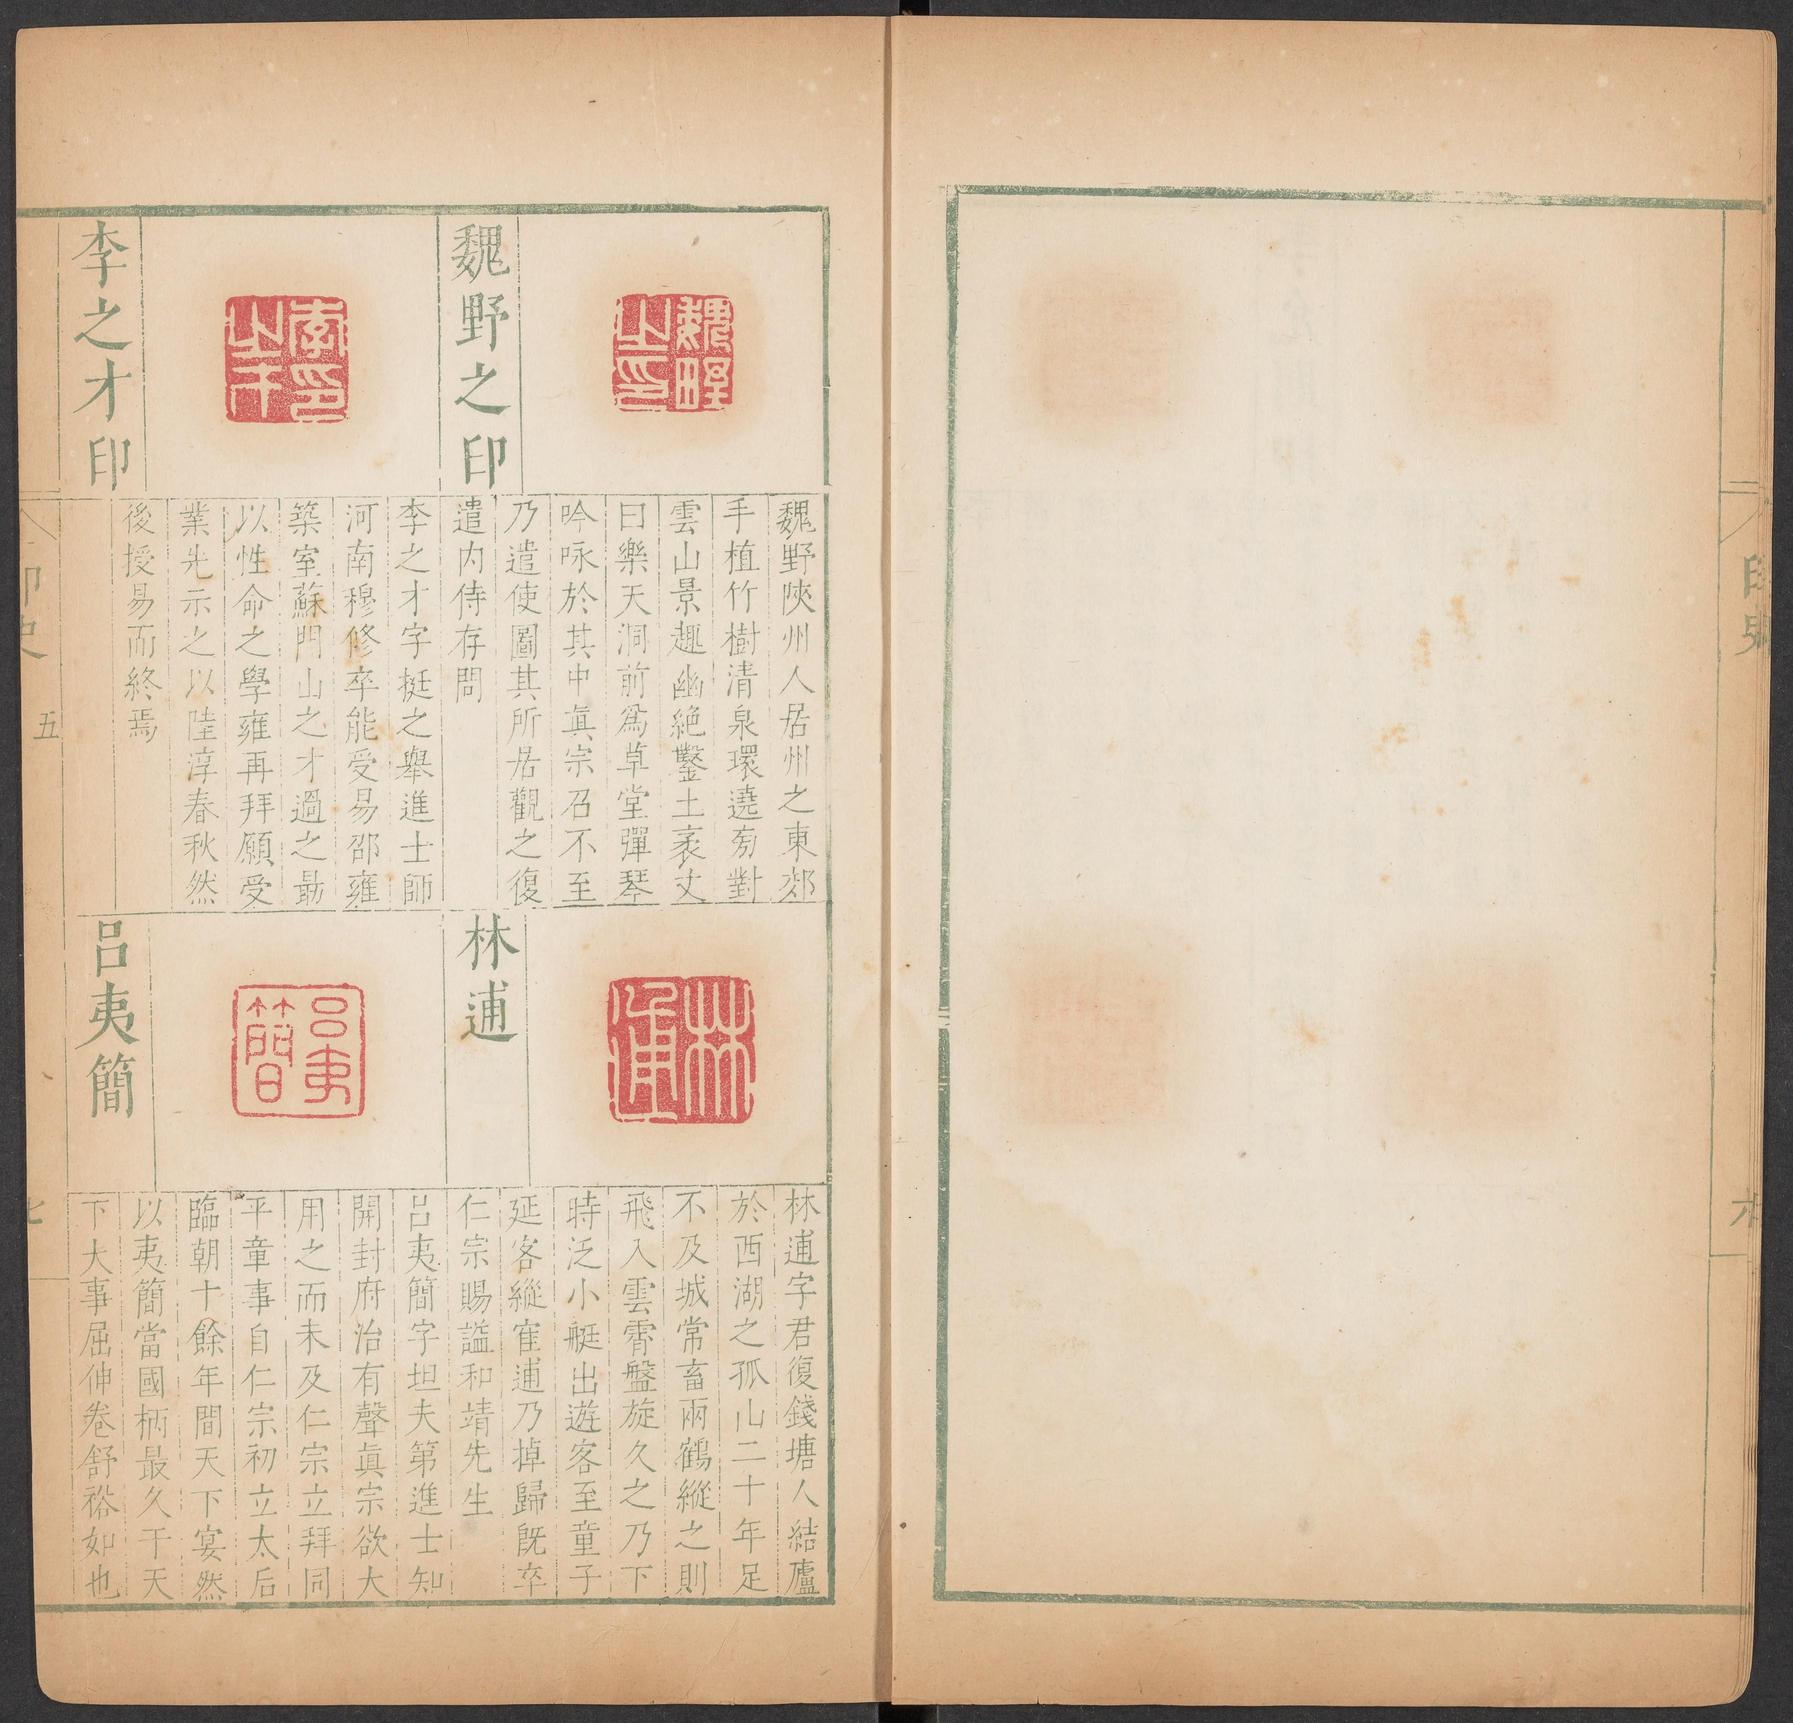 印史
六
魏野之印
魏野陝州人居州之東郊
手植竹樹清泉環遶旁對
雲山景趣幽絕鑿土袤丈
曰樂天洞前爲草堂彈琴
吟咏於其中真宗召不至
乃遣使圖其所居觀之復
遣內侍存問
李之才印
李之才字挺之舉進士師
河南穆修卒能受易邵雍
築室蘇門山之才過之最
以性命之學雍再拜願受
業先示之以陸淳春秋然
後授易而終焉
林逋
林逋字君復錢塘人結廬
於西湖之孤山二十年足
不及城常畜兩鶴縱之則
飛入雲霄盤旋久之乃下
時泛小艇出遊客至童子
延客縱隺逋乃掉歸旣卒
仁宗賜謚和靖先生
呂夷簡
呂夷簡字坦夫第進士知
開封府治有聲真宗欲大
用之而未及仁宗立拜同
平章事自仁宗初立太后
臨朝十餘年間天下宴然
以夷簡當國柄最久于天
下大事屈伸卷舒裕如也
印史
五
七